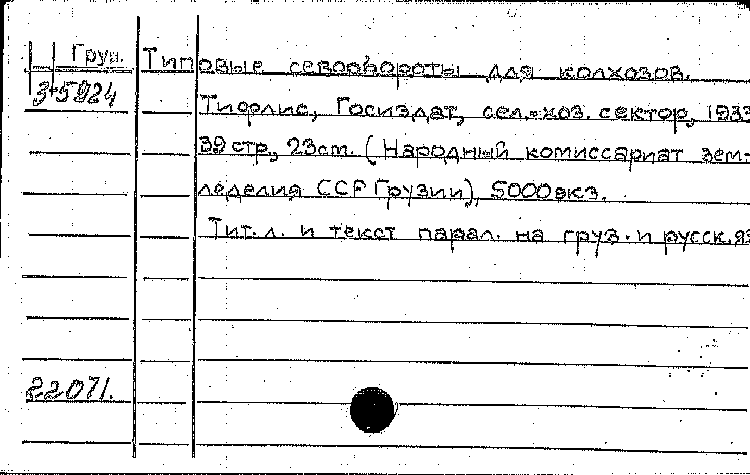 Груз. Типовые севообороты для колхозов.
3-5924
Тифлис, Госиздат, сел.-хоз. сектор, 1933
39 стр., 23 см. (Народный комиссариат зем-
леделия ССР Грузии), 5000 экз.
Тит. л. и текст парал. на груз. и русск. яз
22071.